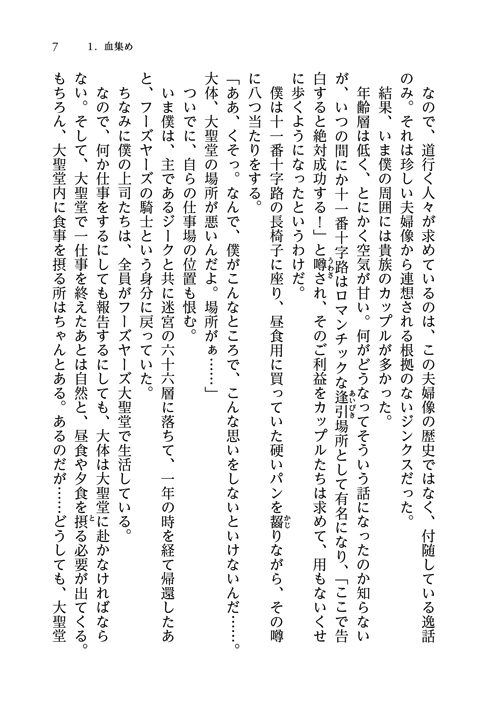 7　1．血集め
　なので、道行く人々が求めているのは、この夫婦像の歴史ではなく、付随している逸話
のみ。それは珍しい夫婦像から連想される根拠のないジンクスだった。
　結果、いま僕の周囲には貴族のカップルが多かった。
　年齢層は低く、とにかく空気が甘い。何がどうなってそういう話になったのか知らない
が、いつの間にか十一番十字路はロマンチックな逢引場所として有名になり、「ここで告
白すると絶対成功する！」と噂され、そのご利益をカップルたちは求めて、用もないくせ
に歩くようになったというわけだ。
　僕は十一番十字路の長椅子に座り、昼食用に買っていた硬いパンを齧りながら、その噂
に八つ当たりをする。
「ああ、くそっ。なんで、僕がこんなところで、こんな思いをしないといけないんだ……。
大体、大聖堂の場所が悪いんだよ。場所がぁ……」
　ついでに、自らの仕事場の位置も恨む。
　いま僕は、主であるジークと共に迷宮の六十六層に落ちて、一年の時を経て帰還したあ
と、フーズヤーズの騎士という身分に戻っていた。
　ちなみに僕の上司たちは、全員がフーズヤーズ大聖堂で生活している。
　なので、何か仕事をするにしても報告するにしても、大体は大聖堂に赴かなければなら
ない。そして、大聖堂で一仕事を終えたあとは自然と、昼食や夕食を摂る必要が出てくる。
もちろん、大聖堂内に食事を摂る所はちゃんとある。あるのだが……どうしても、大聖堂